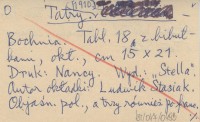 O Tatry.
Bochnia. Tabl. 18 z bibuł-
kami, okł., can 15 x 21.
Druk: Nancy. Wyd: "Stella".
Autor okładki Ludwik Stasiak.
Objaśn. pol., a trzy również po